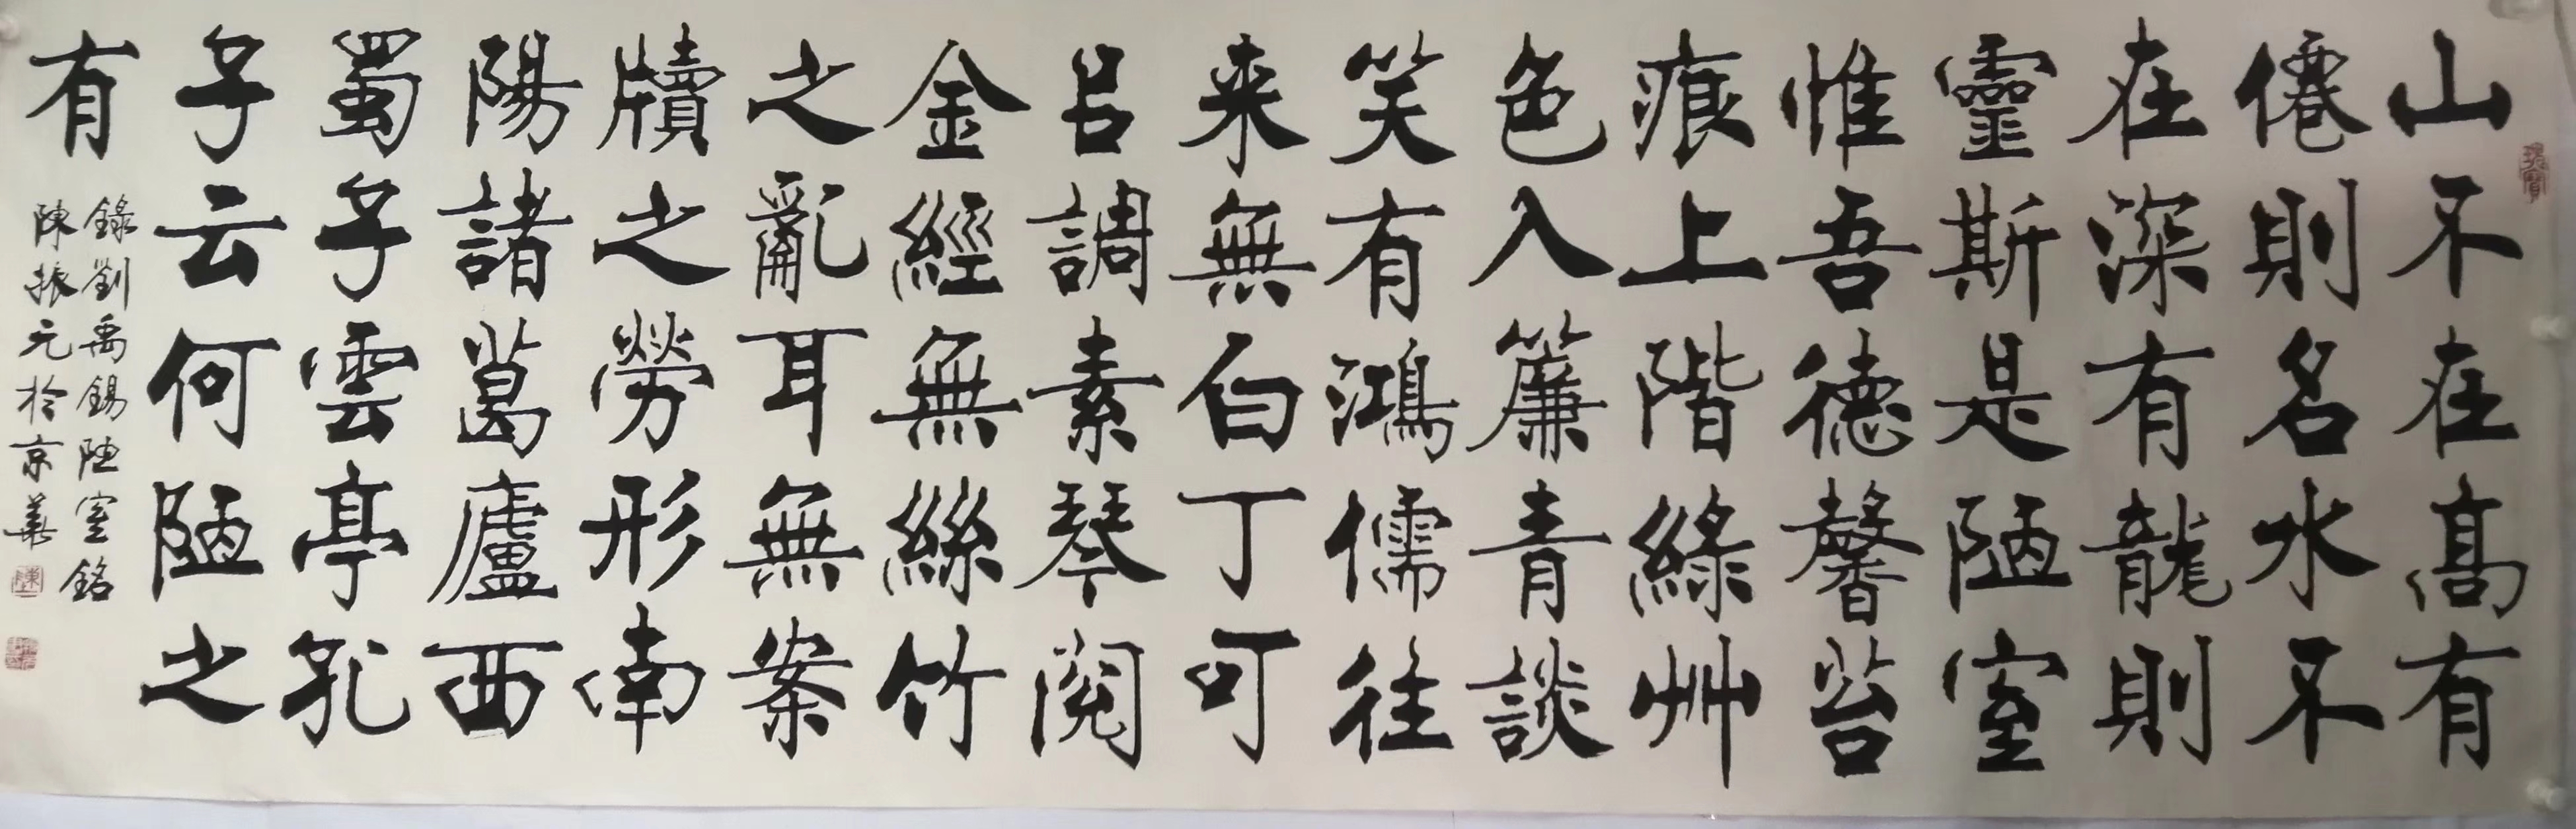 山不在高有
僊則名水不
在深有龍則
靈斯是陋室
惟吾德馨苔
痕上階綠艸
色入簾青談
笑有鴻儒往
来無白丁可
吕調素琴閱
金經無絲竹
之亂耳無案
牘之勞形南
陽諸葛廬西
蜀子雲亭孔
子云何陋之
有
錄劉禹錫陋室銘
陳振元於京華